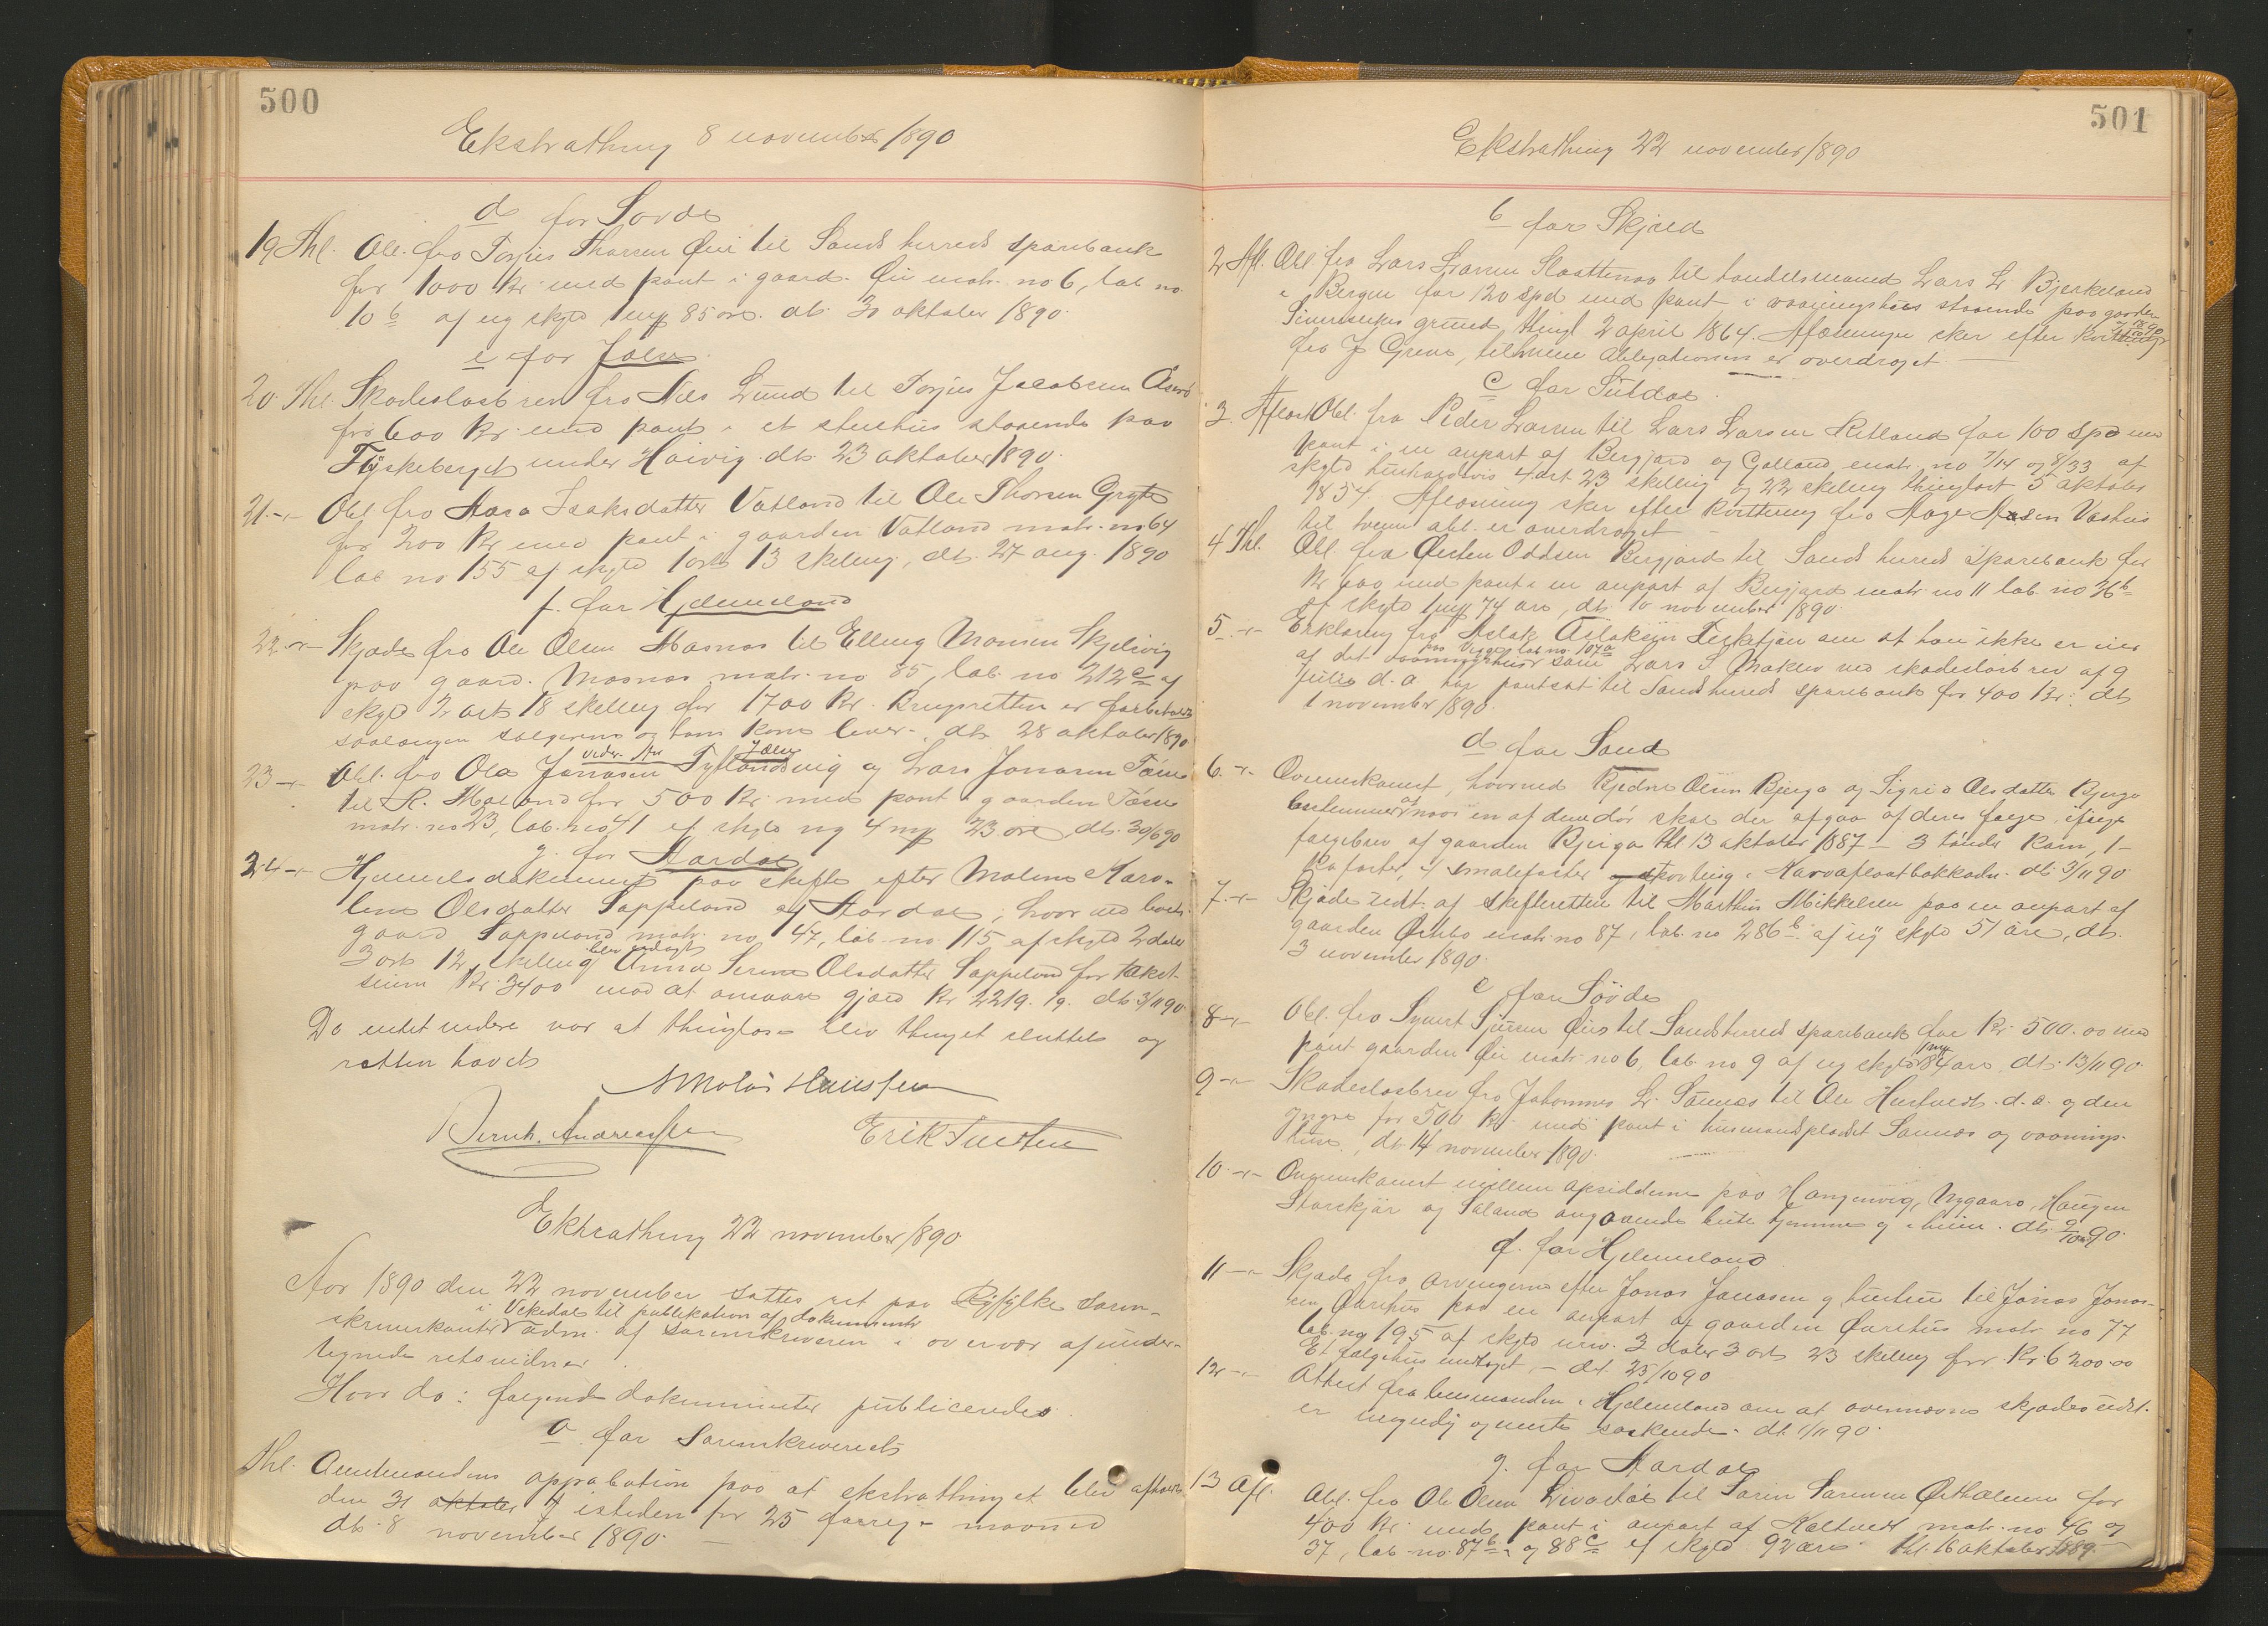 500
Ekstrathing 8 november 1890
d for Sovde
19 Thl. Obl. fra Torjus Thorsen Øie til Sands herreds sparebank
for 1000 kr. med pant i gaard. Øie matr. no 6, lab no
10 b af ny skyld 1 mk 85 øre. dt. 30 oktober 1890.
e for Jelse
20. Thl. Skadesløsbrev fra Nils Lund til Torjus Jacobsen
for 600 kr. med pant i et stuehus staaende paa
Tyskeberget under Hoivig. dt. 23 oktober 1890.
21. -"- Obl fra Aasa Isaksdatter Vatland til Ole Thorsen Gryte
for 200 kr med pant i gaarden Vatland matr. no 64
lab no 155 af skyld 1 ort 13 skilling, dt. 27 aug. 1890
f. for Hjelmeland
22 -"- Skjøde fra Ole Olsen Masnes til Elling Monsen Skjelivig
paa gaard. Masnes matr. no 85, lab. no 212 c af
skyld 2 ort 18 skilling for 1700 kr. Brugsretten er forbeholdt
saalænge sælgeren og hans kone lever. dt. 28 oktober 1890
23 -"- Obl. fra Ola Jonasen Tytlandsvig og Lars Jonasen
til R. Mæland for 500 kr. med pant i gaarden
matr. no 23, lab. no 41 af skyld ny 4 mk 23 øre dt. 30/6 90
g. for Aardal
24 -"- Hjemmelsdokument paa skifte efter Malene Karo-
line Olsdatter Soppeland af Aardal, hvorved
gaard Soppeland matr. no 47, lab. no. 115 af skyld 2 daler
3 ort 12 skilling blev udlagt Anna Serine Olsdatter Soppeland for takst-
sum Kr. 3400 mod at ansvare gjæld Kr 2219. 19. dt. 3/11 90
Da intet videre var at thinglæse blev thinget sluttet og
retten hævet
Bernh. Andreassen
Erik Tuesten
Ekstrathing 22 november 1890
Aar 1890 den 22 november sattes ret paa Ryfylke soren-
skriverkontor i Vikedal til publikation af dokumenter adm. af sorenskriveren i overvær af under-
tegnede retsvidner
Hvor da: følgende dokumenter publiceredes.
a for Sorenskriveriet
Thl. Amtmandens approbation paa at ekstrathinget blev afholdt
den 31 oktober isteden for 25 forrige maaned
dt. 8 november 1890.
501
Ekstrathing 22 november 1890
b for Skjold
2 Afl. Obl fra Lars Larsen Slaattenaa til handelsmand Lars L. Bjerkeland
i Bergen for 120 spd med pant i vaaningshus staaende paa gaarden
grund thingl 2 april 1864. Aflæsningen sker efter kvittering
fra J Grene, til hvem obligationen er overdraget.
c for Suldal
3. Aflæst Obl. fra Peder Larsen til Lars Larsen Ritland for 100 spd med
pant i en anpart af Bergjord og matr. no 7/14 og 8/33 af
skyld henholdsvis 4 ort 23 skilling og 22 skilling thinglæst 5 oktober
1854. Aflæsning sker efter kvittering fra Aage Aasen Vashus
til hvem obl. er overdraget
4 Thl. Obl. fra Øisten Oddsen Bergjord til Sands herreds sparebank for
kr 600 med pant i en anpart af Bergjord matr no 11 lab. no 26 b
af skyld 1 mk 74 øre, dt. 10 november 1890.
5. -"- Erklæring fra Aslak Aslaksen om at han ikke er eier
af det vaaningshus lab no. 107 a som Lars S. Moklev ved skadesløsbrev af 9
Juli d. a. har pantsat til Sands herreds sparebank for 400 kr: dt
1 november 1890.
d for Sand
6. -"- Overenskomst, hvorved Kjedne Olsen Bjerga og Sigrid Olsdatter Bjerga
bestemmer at naar en af dem dør skal der afgaa af deres følge, ifølge
følgebrev af gaarden Bjerga thl 13 oktober 1887 - 3 tønder korn, 1
kofoster, 4 smalefoster
dt. 3/11 90
7. -"- Skjøde udst. af skifteretten til Marthus Mikkelsen paa en anpart af
gaarden Østebø matr no 87, lab. no 286 b af ny skyld 51 øre, dt.
3 november 1890.
e for Sovde
8 -"- Obl. fra Syvert Sjursen Øie til Sands herreds sparebank for Kr. 500.00 med
pant gaarden Øie matr no 6, lab. no 9 af ny skyld 1 mk 84 øre dt. 13/11 90.
9 -"- Skadesløsbrev fra Johannes L. Sannes til Ole Husfuedt d. a. og den
yngre for 500 kr med pant i husmandspladset Sannes og vaanings-
hus, dt. 14 november 1890.
10. -"- Overenskomst imellem opsidderne paa Hangervig, Nygaard, Haugen
Storskjær og Saland angaaende
f. for Hjelmeland
11 -"- Skjøde fra arvingerne efter Jonas Jonasen og hustru til Jonas Jonas-
sen Øvrehus paa en anpart af gaarden Øvrehus matr no 77
lab. no 195 af skyld urev. 3 daler 3 ort 23 skilling for Kr. 6200.00
Et følgehus undtaget - dt. 25/10 90
12 -"- Attest fra lensmanden i Hjelmeland om at ovennævnte skjødes udst.
er myndig og uden søskende. dt. 1/11 90.
g. for Aardal
13 Afl. Obl. fra Ole Olsen Livastøl til Søren Sørensen Østhølmen for
400 kr. med pant i anpart af Kaltvedt matr. no. 46 og
37, lab no. 87 b og 88 c af skyld 92 øre thl. 16 oktober 1889.